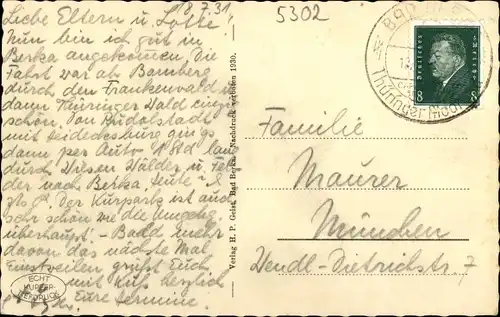 18.7.31.
Liebe Eltern u. Lotte!
Nun bin ich gut in
Berka angekommen. Die
Fahrt war ab Bamberg
durch den Frankenwald u.
dann Thüringer Wald
schön. Von Rudolstadt
mit ging's
dann per Auto 1 Std lang
durch Wiesen Wälder u.
der nach Berka. Heute
Der Kurpark ist auch
sehr schön wie die Umgebg.
überhaupt. - Bald mehr
davon das nächste Mal
Einstweilen grüßt Euch
mit Kuß herzlich
Eure Hermine.
ECHT
KUPFER-
TIEFDRUCK
Verlag H. P. Geist, Bad Berka. Nachdruck verboten 1930.
5302
BAD BERKA
Thüringer
Deutsches Reich
8 8
Familie
Maurer
München
Wendl-Dietrichstr. 7